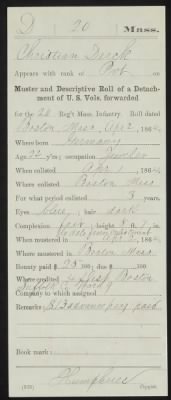 D 20 Mass.
Christian Dirck
Appears with rank of Pvt on
Muster and Descriptive Roll of a Detach-
ment of U. S. Vols. forwarded
for the 20 Reg't Mass. Infantry. Roll dated
Boston Mass Apr 2, 186
Where born Germany
Age 22 y'rs; occupation Jeweler
When enlisted Apr 1, 186
Where enlisted Boston Mass
For what period enlisted 3 years.
Eyes blue; hair dark
Complexion fair; height 5 ft. in.
When mustered in Apr 2, 186
Where mustered in Boston Mass
Bounty paid $ 25 ; due $ 100
Where credited Boston
Suffolk Co
Company to which assigned
Remarks: paid
Book mark:
Humphries
(339) Copyist.